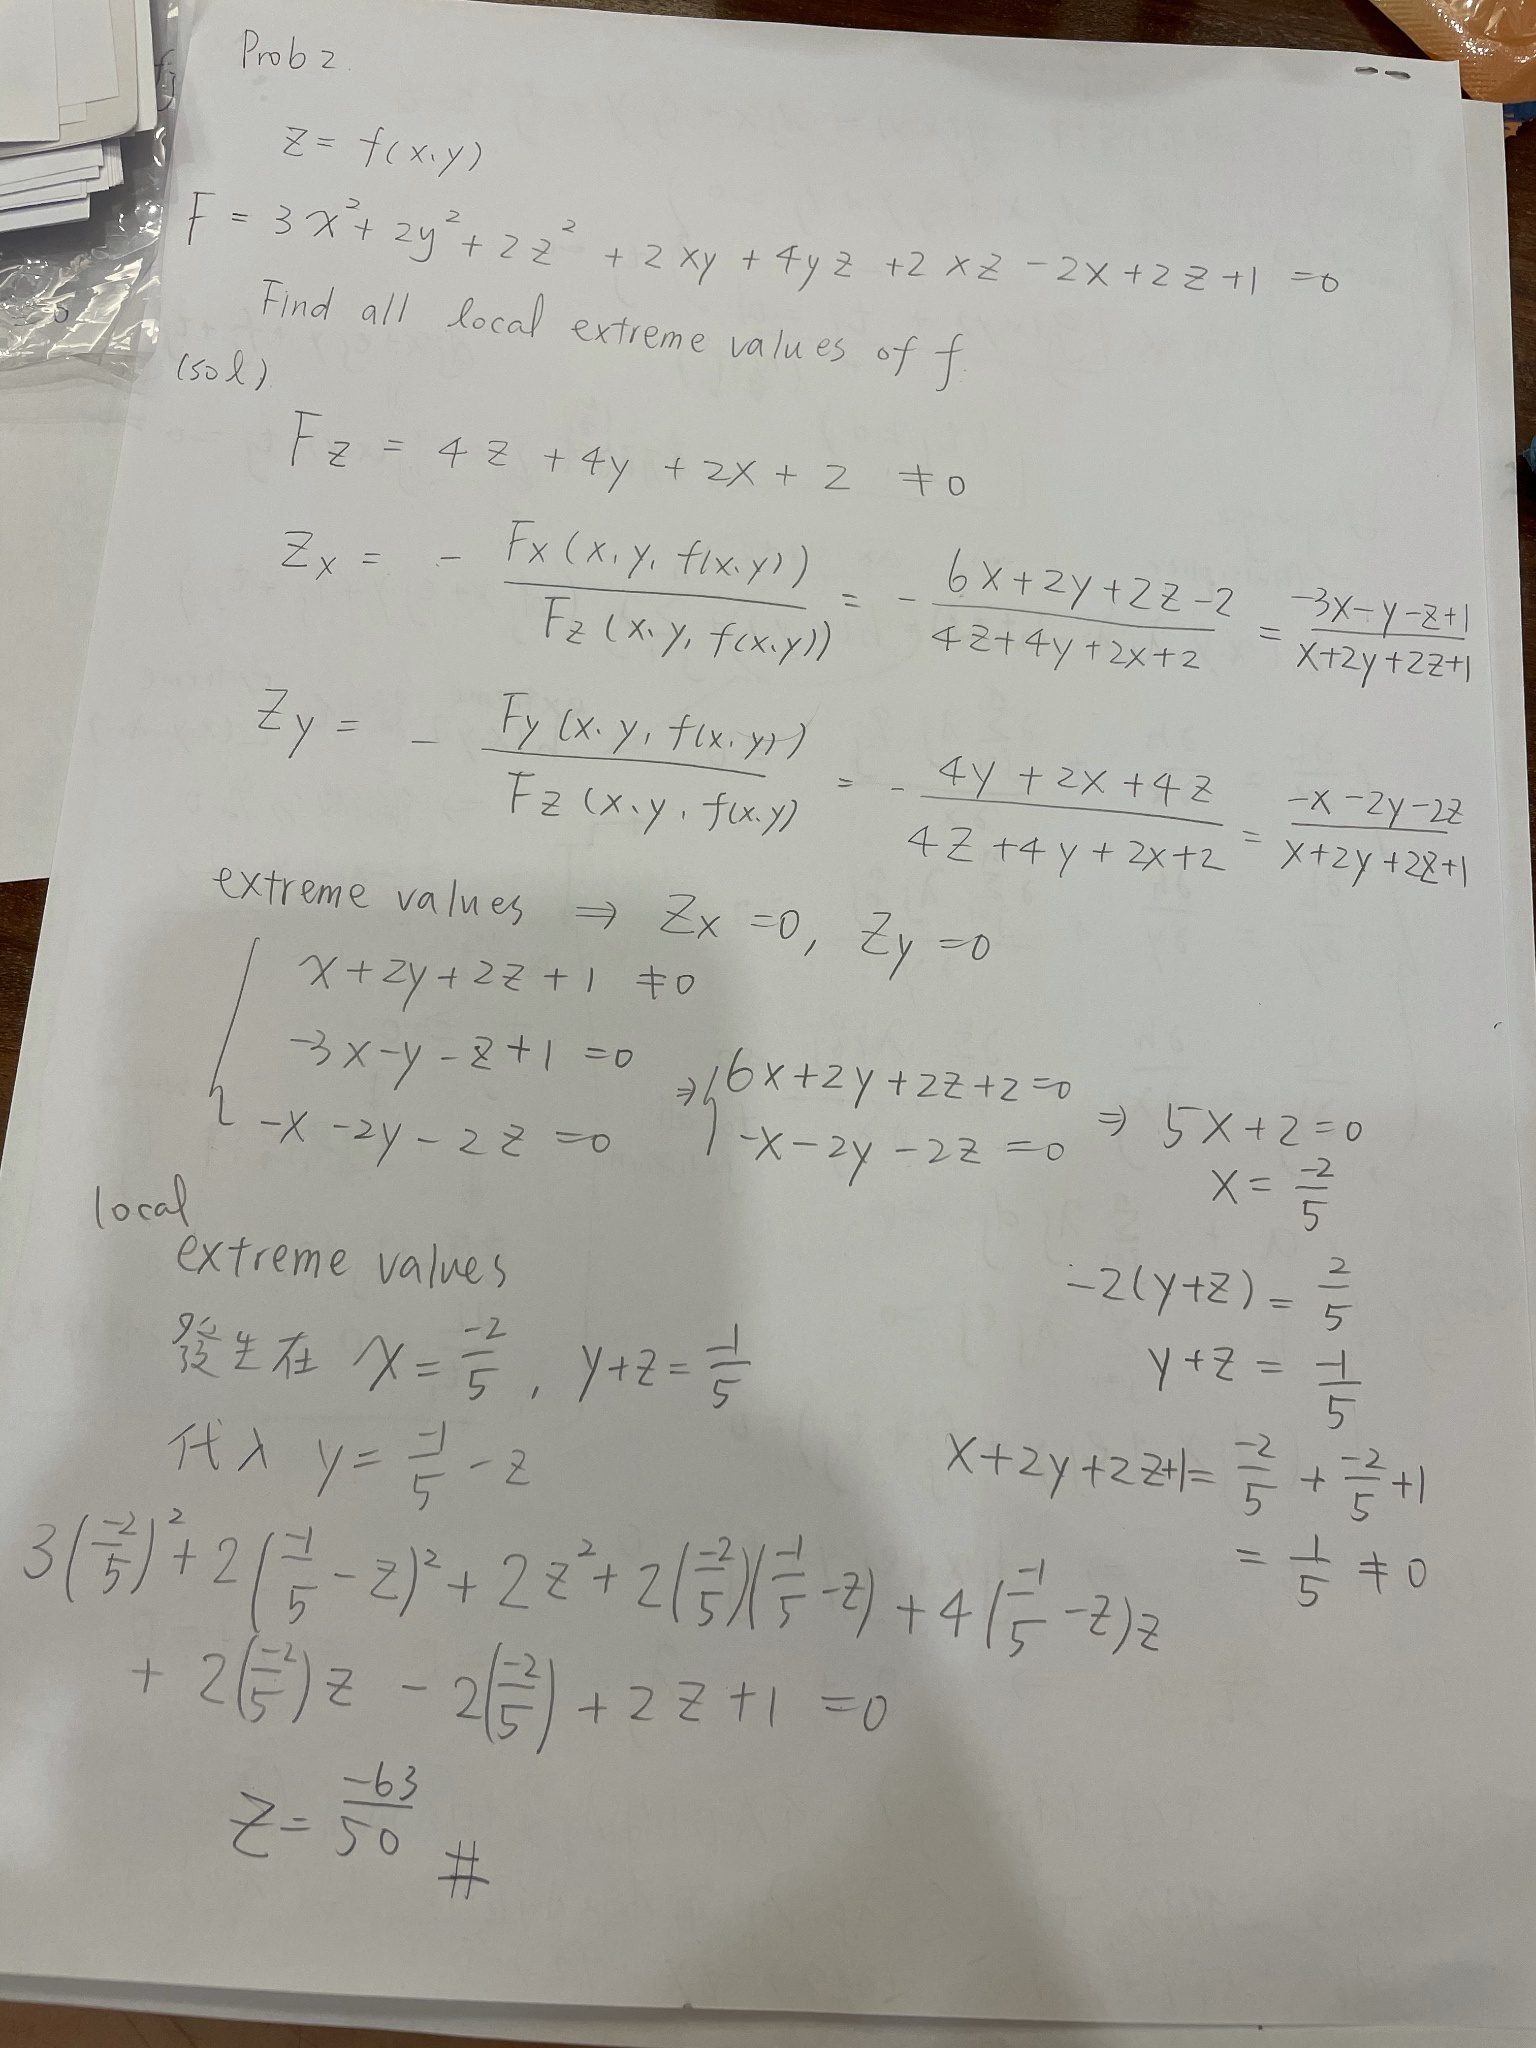 Prob 2.
z = f(x,y)
F = 3x²+2y²+2z²+2xy+4yz+2xz-2x+2z+1=0
Find all local extreme values of f.
(sol)
Fz = 4z+4y+2x+2 ≠0
Zx = - Fx(x,y,f(x,y)) / Fz(x,y,f(x,y)) = - (6x+2y+2z-2) / (4z+4y+2x+2) = (-3x-y-z+1) / (x+2y+2z+1)
Zy = - Fy(x,y,f(x,y)) / Fz(x,y,f(x,y) = - (4y+2x+4z) / (4z+4y+2x+2) = (-x-2y-2z) / (x+2y+2z+1)
extreme values ⇒ Zx=0, Zy=0
x+2y+2z+1 ≠0
-3x-y-z+1=0 ⇒ 6x+2y+2z+2=0
-x-2y-2z=0 -x-2y-2z=0 ⇒ 5x+2=0
x = -2/5
-2(y+z) = 2/5
y+z = -1/5
x+2y+2z+1 = -2/5 + -2/5 + 1
= 1/5 ≠0
local
extreme values
發生在 x = -2/5, y+z = -1/5
代入 y = -1/5 - z
3(-2/5)²+2(-1/5-z)²+2z²+2(-2/5)(-1/5-z)+4(-1/5-z)z
+2(-2/5)z-2(-2/5)+2z+1=0
z = -63/50 #